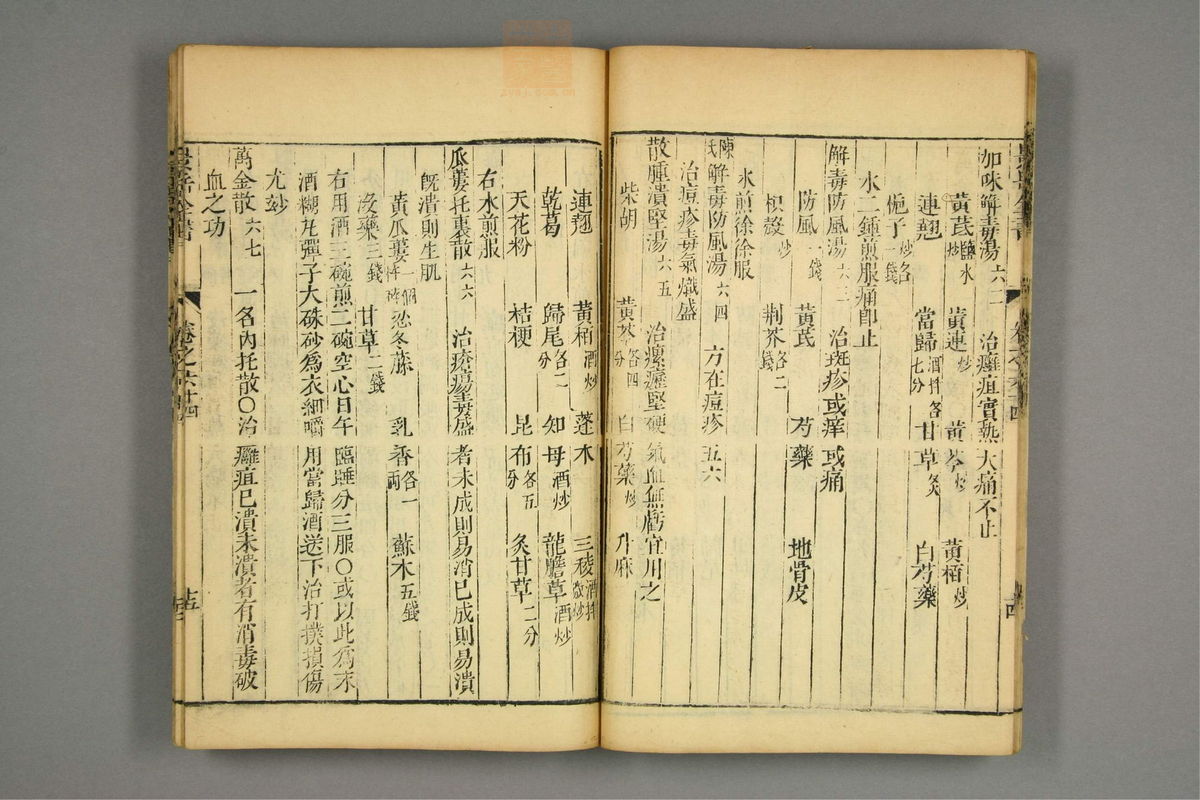 加味解毒湯六二 治癰疽實熱大痛不止
黃芪鹽水炒 黃連炒 黃芩炒 黃栢炒
連翹 當歸酒拌各七分 甘草炙 白芍藥
梔子炒名一錢
水二鍾煎服痛卽止
解毒防風湯六三 治斑疹或痒或痛
防風一錢 黃芪 芍藥 地骨皮
枳殼炒 荆芥各二錢
水煎徐徐服
陳氏解毒防風湯六四 方在痘疹五六
治痘疹毒氣熾盛
散腫潰堅湯六五 治瘰癧堅硬氣血無虧宜用之
柴胡 黃芩各四分 白芍藥炒 升麻
連翹 黃栢酒炒 蓬术 三稜酒拌微炒
乾葛 歸尾各二分 知母酒炒 龍膽草酒炒
天花粉 桔梗 昆布各五分 炙甘草二分
右水煎服
瓜蔞托裏散六六 治瘡瘍毒盛者未成則易消已成則易潰
旣潰則生肌
黃瓜蔞一個杵碎 忍冬藤 乳香各一兩 蘇木五錢
沒藥三錢 甘草二錢
右用酒三碗煎二碗空心日午臨睡分三服○或以此爲末
酒糊丸彈子大硃砂爲衣細嚼用當歸酒送下治打撲損傷
尤妙
萬金散六七 一名內托散○治癰疽已潰未潰者有消毒破
血之功